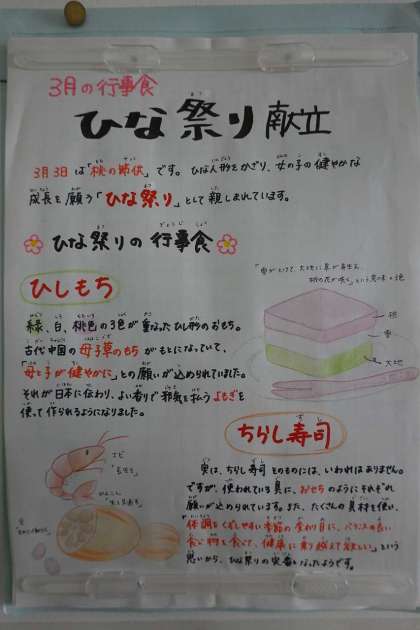 3月の行事食
ひな祭り献立
3月3日は「桃の節供」です。ひな人形をかざり、女の子の健やかな
成長を願う「ひな祭り」として親しまれています。
ひな祭りの行事食
ひしもち
緑、白、桃色の3色が重なったひし形のおもち。
古代中国の母子草のもちがもとになっていて、
「母と子が健やかに」との願いが込められていました。
それが日本に伝わり、よい香りで邪気を払うよもぎを
使って作られるようになりました。
「雪がとけて、大地に草が芽生え、
桃の花が咲く」という意味の色
桃
雪
大地
ちらし寿司
実は、ちらし寿司そのものには、いわれはありません。
ですが、使われている具に、おせちのようにそれぞれ
願いが込められています。また、たくさんの具材を使い、
「体調をくずしやすい季節の変わり目に、バランスの良い
食べ物を食べて、健康に乗り越えて欲しい」という
思いから、ひな祭りの定番となったようです。
エビ
「長生き」
れんこん